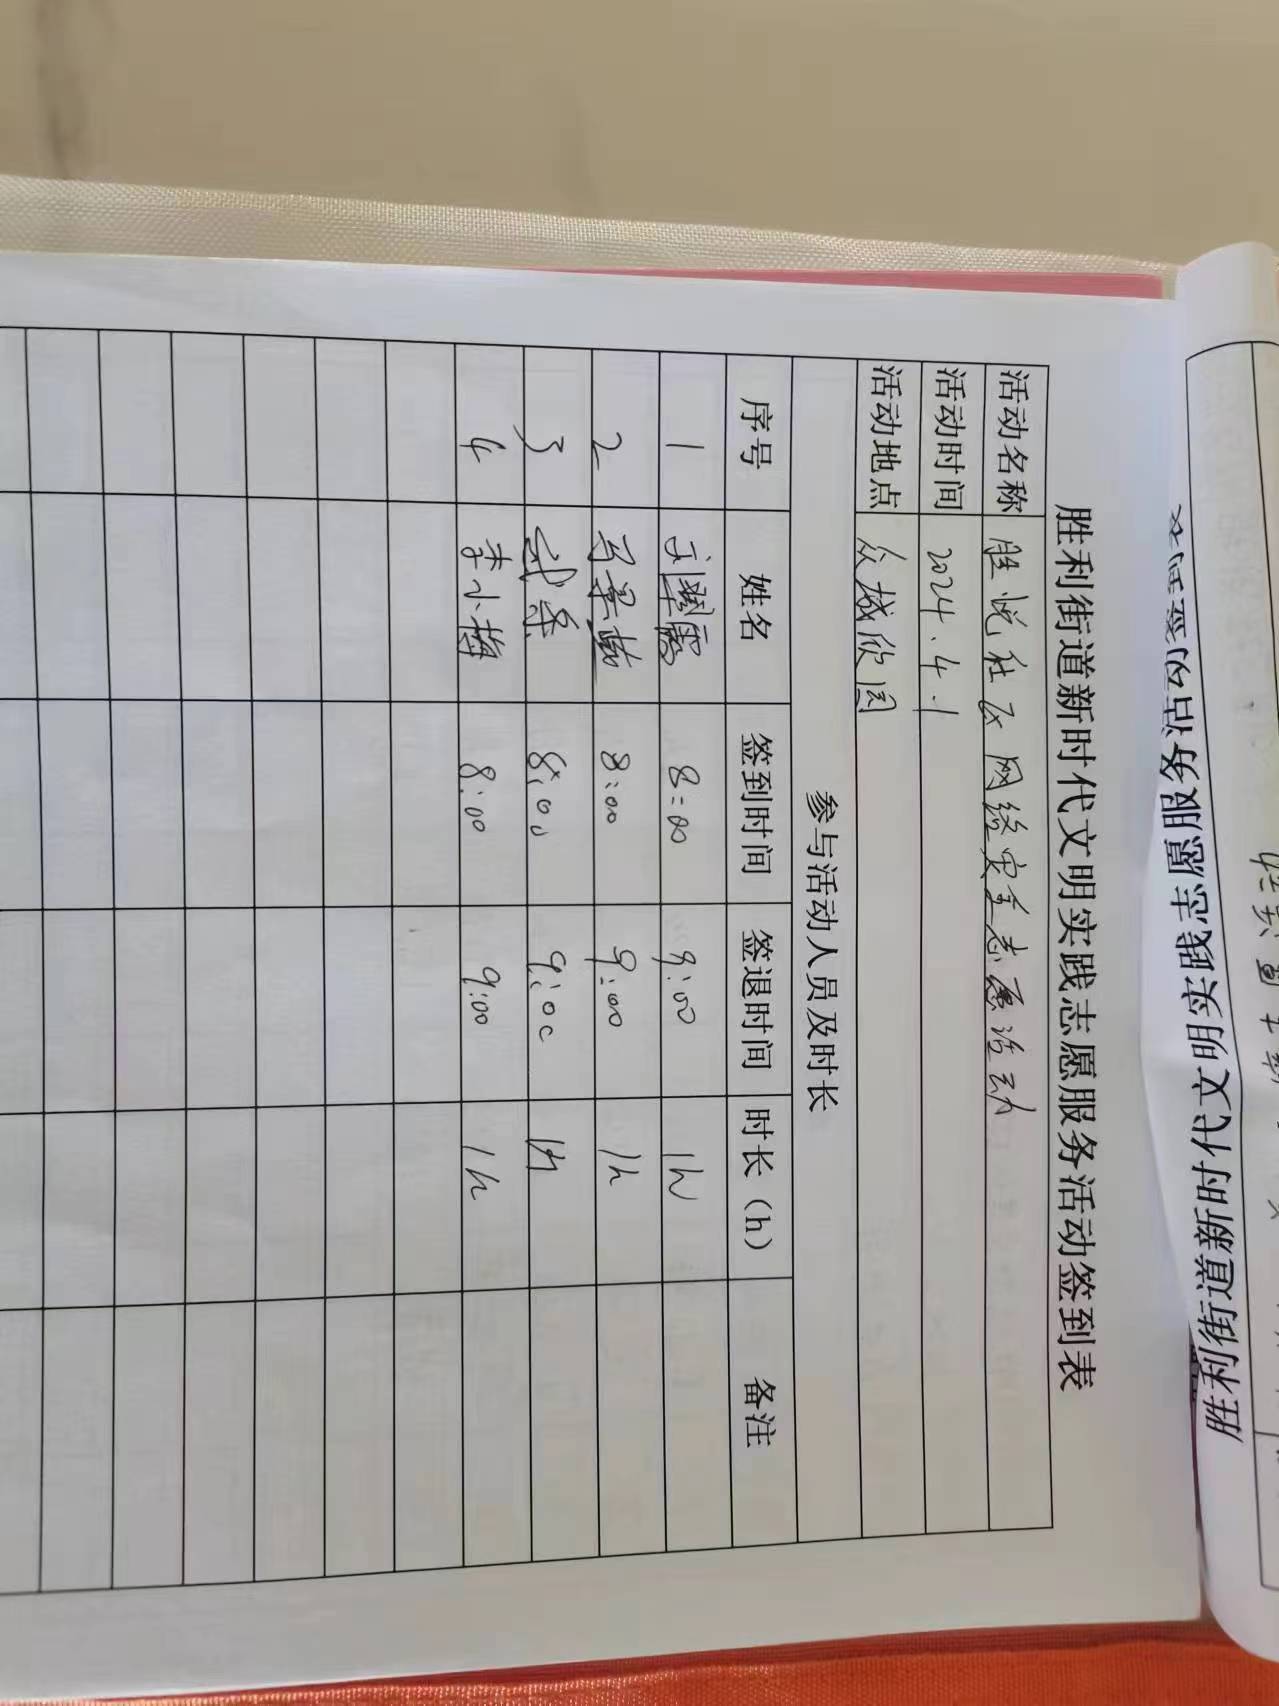 胜利街道新时代文明实践志愿服务活动签到表
活动名称 胜悦社区网络安全志愿活动
活动时间 2024.4.1
活动地点 众城欣园
参与活动人员及时长
序号 姓名 签到时间 签退时间 时长（h） 备注
1 8:00 9:00 1h
2 8:00 9:00 1h
3 8:00 9:00 1h
4 李小梅 8:00 9:00 1h
胜利街道新时代文明实践志愿服务活动签到表